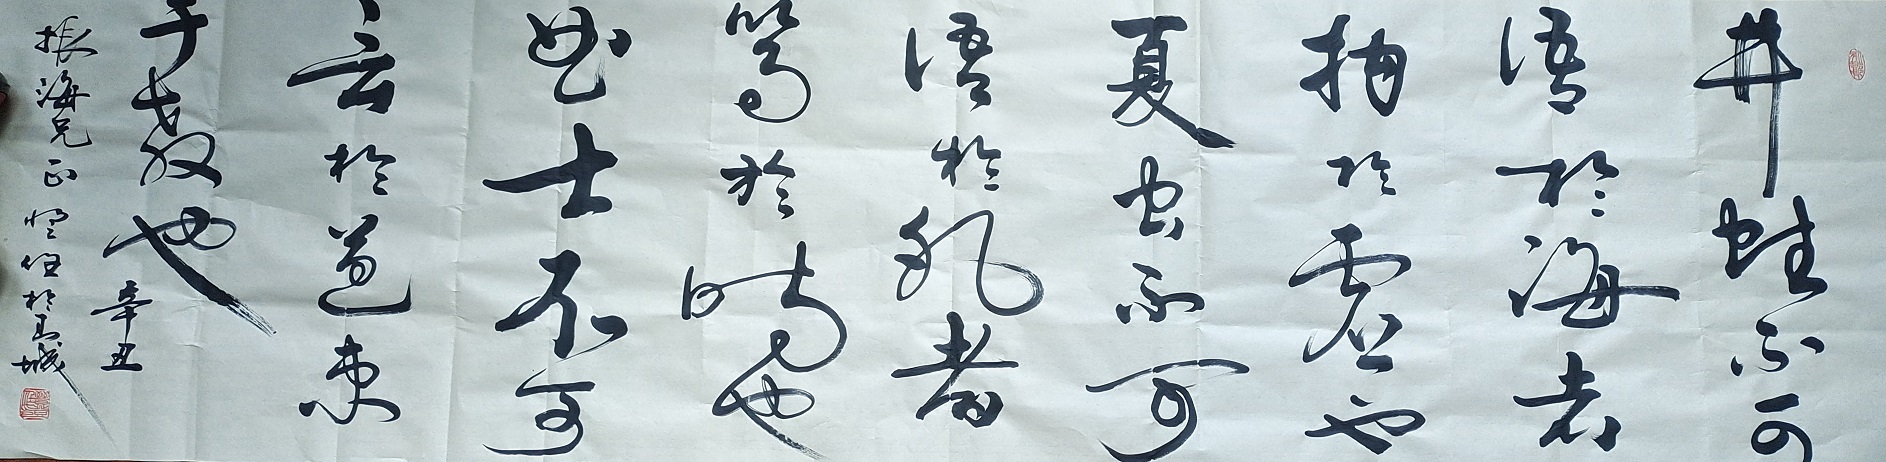 井蛙不可
语於海者
拘於虚也
夏虫不可
语於冰者
笃於时也
曲士不可
言於道束
于教也
辛丑
振海兄正 於禹城